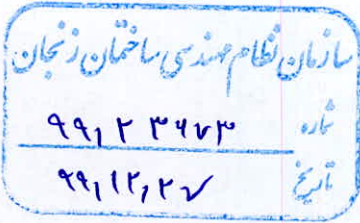 سازمان نظام مهندسی ساختمان زنجان
شماره ۹۹,۲۳۶۷۳
تاریخ ۹۹,۱۲,۲۷